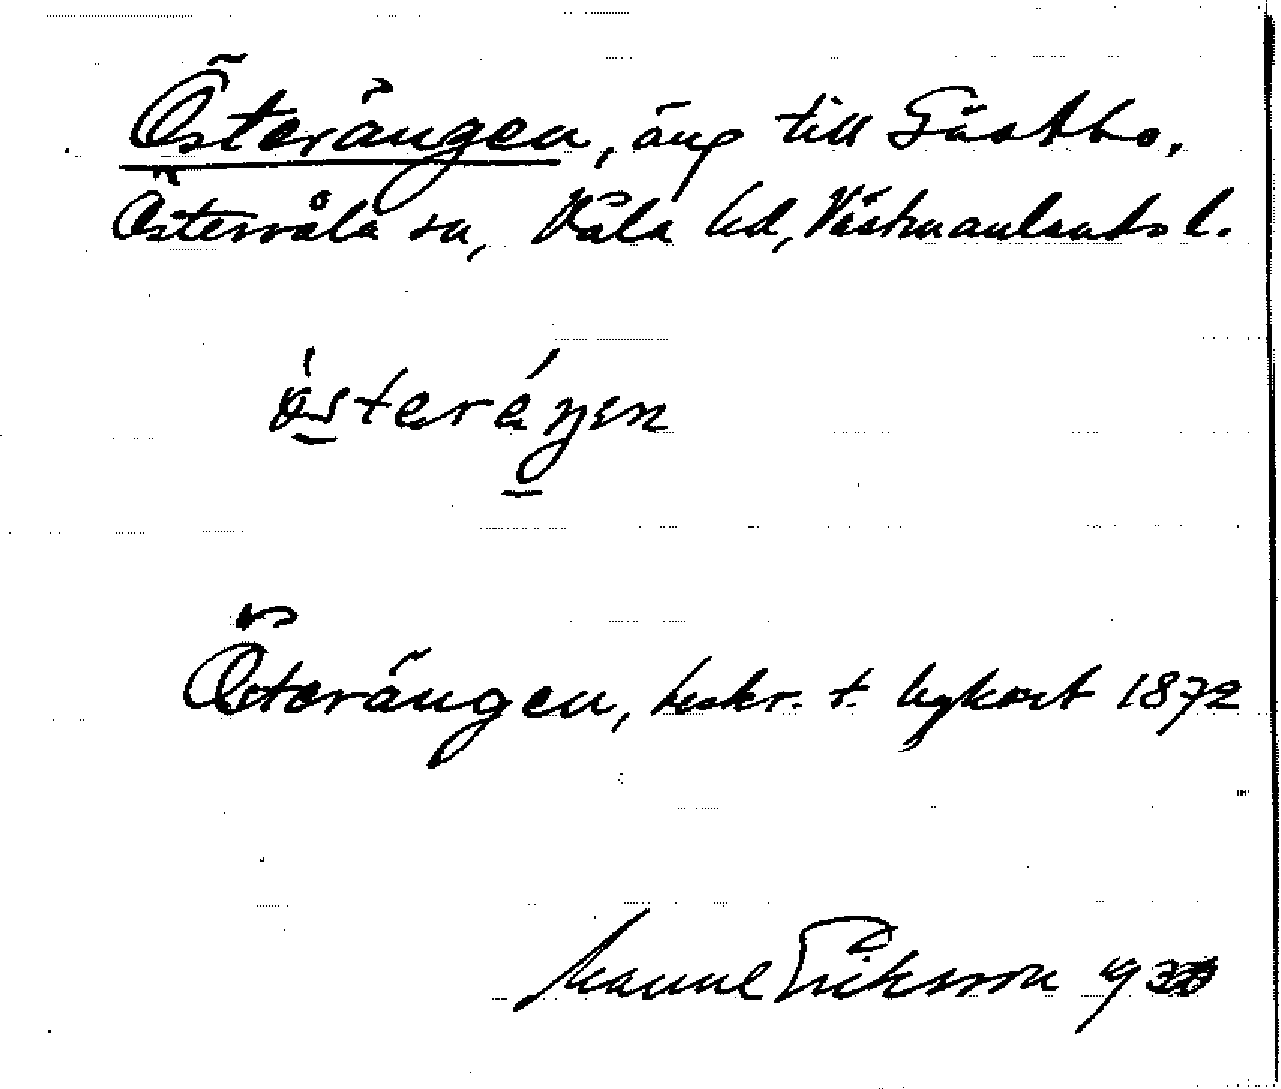 Österängen, äng till Gästbo,
Östervåla sn, Våla hd, Västmanlands l.
österéŋen
Österängen, beskr. t. hgkart 1872
Manne Eriksson